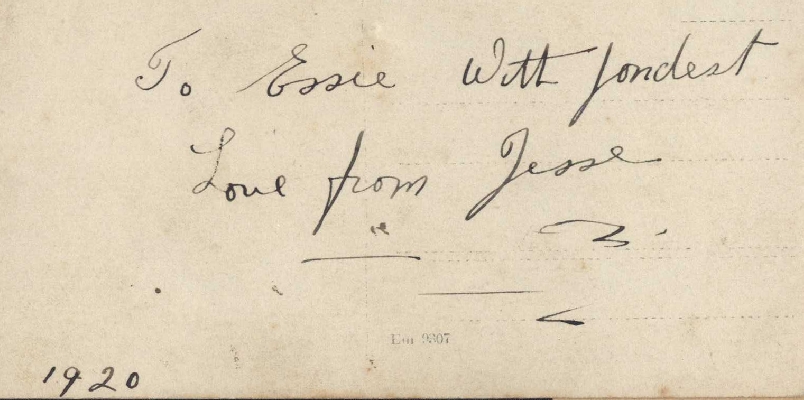 To Essie With fondest
Love from Jesse
1920